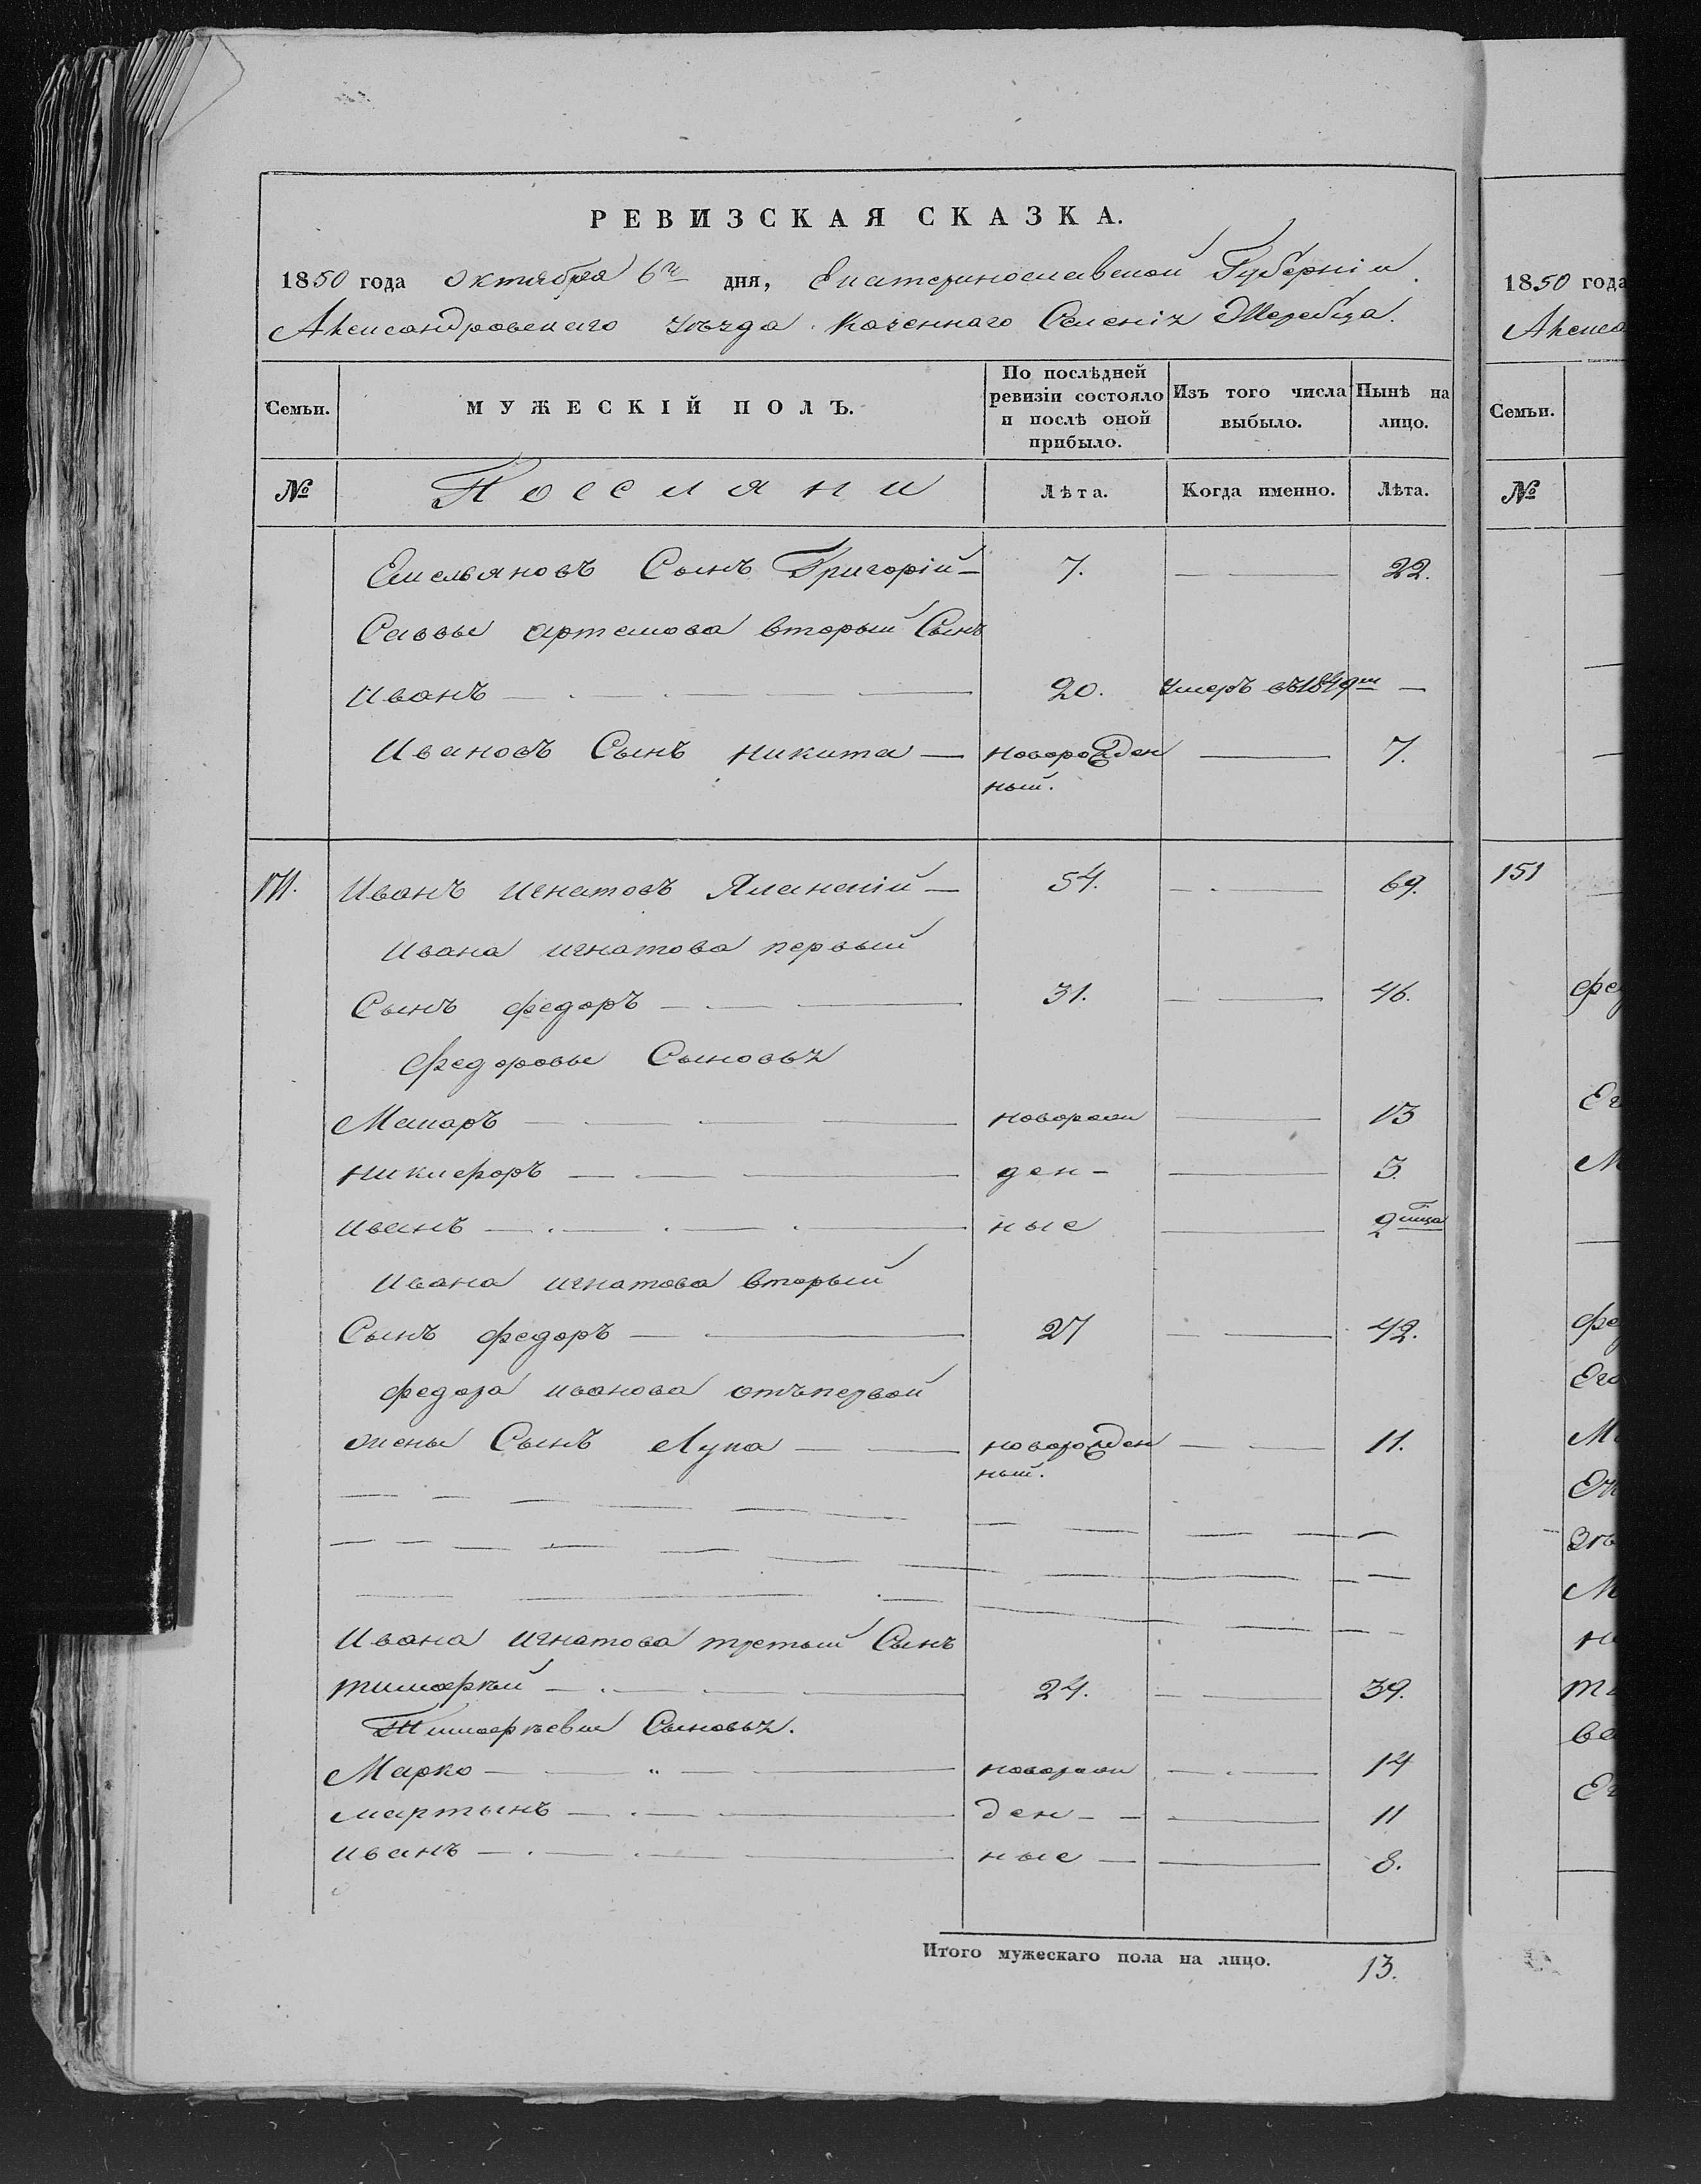 РЕВИЗСКАЯ СКАЗКА.
1850 года Октября 6го дня, Екатеринославской Губерніи.
Александровскаго уѣзда Казеннаго Селенія Жеребца.
Семьи. МУЖЕСКІЙ ПОЛЪ. По послѣдней ревизіи состояло и послѣ оной прибыло. Изъ того числа выбыло. Нынѣ на лицо.
№ Поселяни Лѣта. Когда именно. Лѣта.
Емельяновъ Сынъ Григорій 7. 22.
Саввы Артемова вторый Сынъ
Иванъ 20. умеръ въ 1849м
Ивановъ Сынъ никита новорожден 7.
ный.
Иванъ игнатовъ Яланскій 54. 69.
Ивана игнатова первый
Сынъ федоръ 31. 46.
федоровы Сыновья
Макаръ новорож 13
никифоръ ден- 3.
иванъ ные
Ивана игнатова вторый
Сынъ федоръ 27 42.
федора иванова отъ первой
жены Сынъ Лука новорожден 11.
ный.
Ивана игнатова третый Сынъ
тимофѣй 24. 39.
Тимофѣевы Сыновья.
Марко новорож 14
мартынъ ден- 11
иванъ ные 8.
Итого мужескаго пола на лицо. 13.
1850 года
Алекса
Семьи.
№
151
фед
Ег
М
фе
Его
М
М